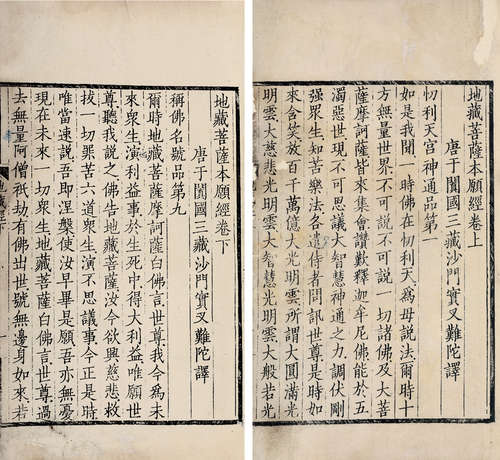 地藏菩薩本願經卷上
唐于闐國三藏沙門實叉難陀譯
忉利天宮神通品第一
如是我聞一時佛在忉利天為母說法爾時十
方無量世界不可說不可說一切諸佛及大菩
薩摩訶薩皆來集會讚歎釋迦牟尼佛能於五
濁惡世現不可思議大智慧神通之力調伏剛
强眾生知苦樂法各遣侍者問訊世尊是時如
來含笑放百千萬億大光明雲所謂大圓滿光
明雲大慈悲光明雲大智慧光明雲大般若光
地藏菩薩本願經卷下
唐于闐國三藏沙門實叉難陀譯
稱佛名號品第九
爾時地藏菩薩摩訶薩白佛言世尊我今為未
來眾生演利益事於生死中得大利益唯願世
尊聽我說之佛告地藏菩薩汝今欲興慈悲救
拔一切罪苦六道眾生演不思議事今正是時
唯當速說吾即涅槃使汝早畢是願吾亦無憂
現在未來一切眾生地藏菩薩白佛言世尊過
去無量阿僧祇劫有佛出世號無邊身如來若